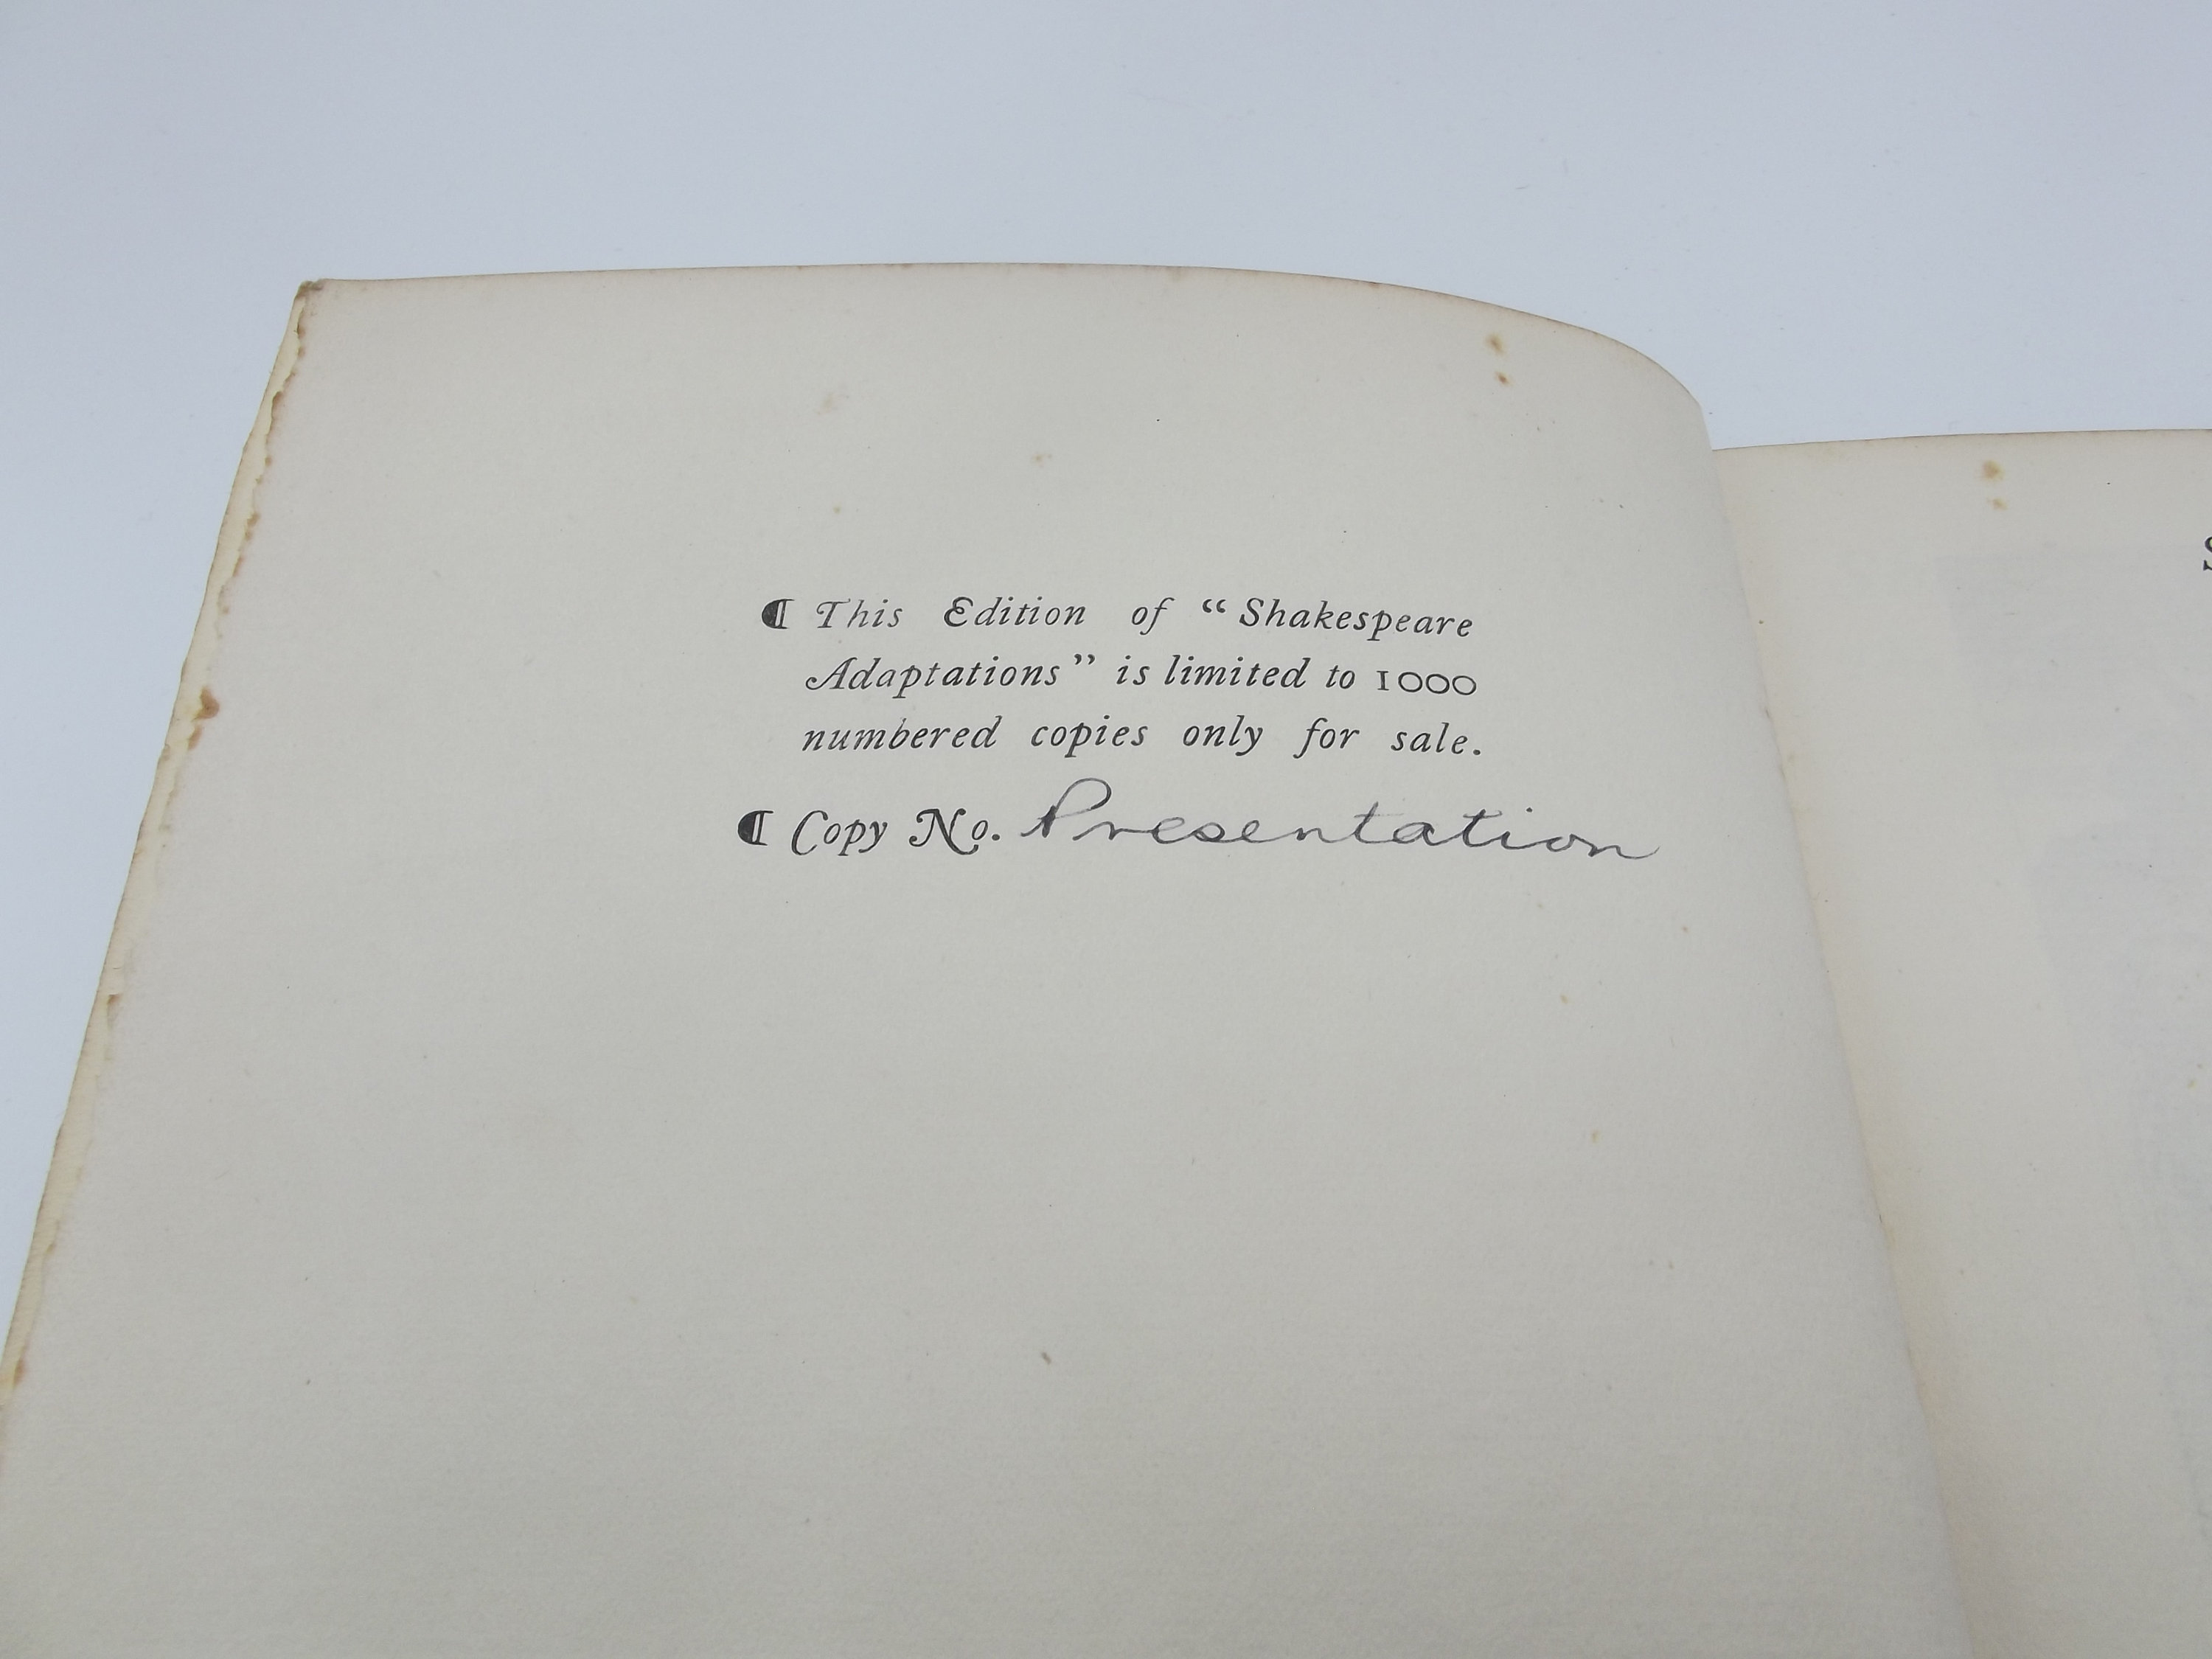 ¶ This Edition of “Shakespeare
Adaptations” is limited to 1000
numbered copies only for sale.
¶ Copy No. Presentation
S